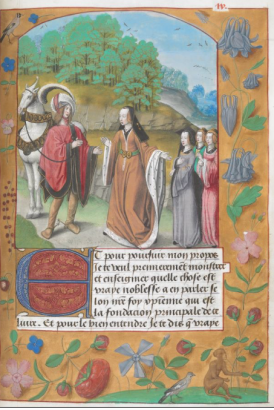 Et pour poursuir mon propos
Je te veul premierement monstrer
et enseignier quelle chose est
vraye noblesse a en parler se
lon mr̃ foy xp̃ienne qui est
la fondacion principale de ce
liure. Et pour le bien entendre Je te dis q̃ vraye